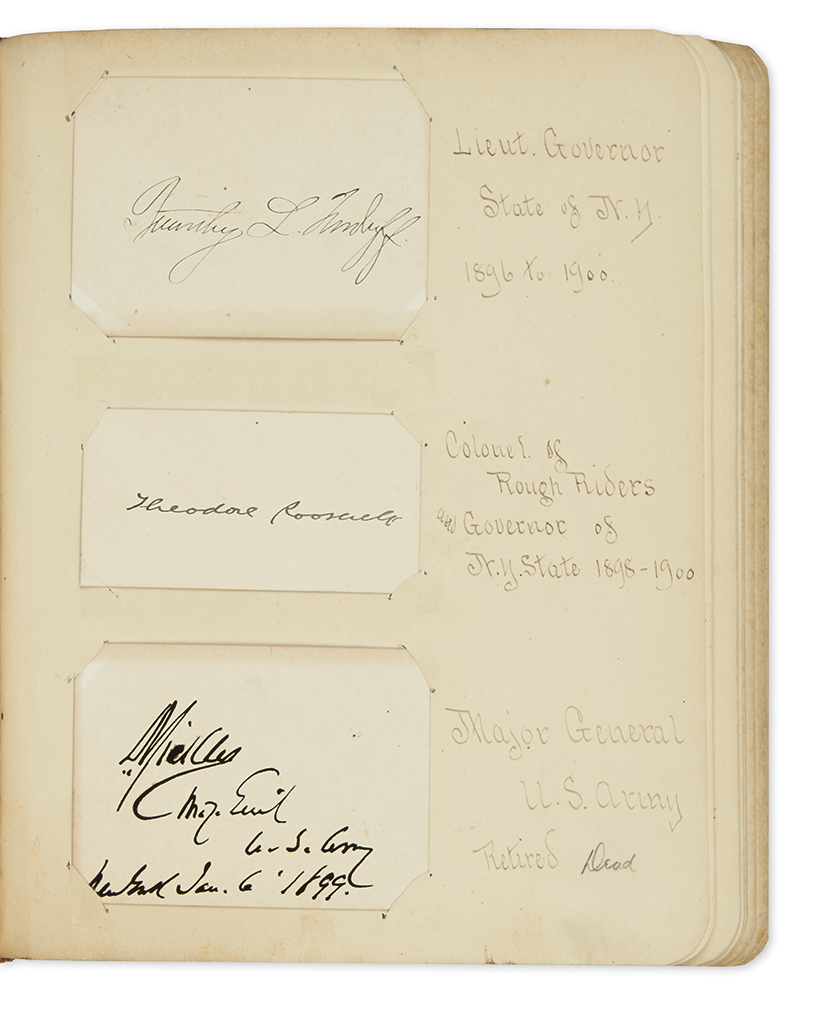 Timothy L. Woodruff.
Lieut. Governor
State of N.Y.
1896 to 1900.
Theodore Roosevelt
Colonel. of
Rough Riders
and Governor of
N.Y. State 1898-1900
Maj. Genl
U.S. Army
New York Jan. 6 '1899.
Major General
U.S. Army
Retired Dead